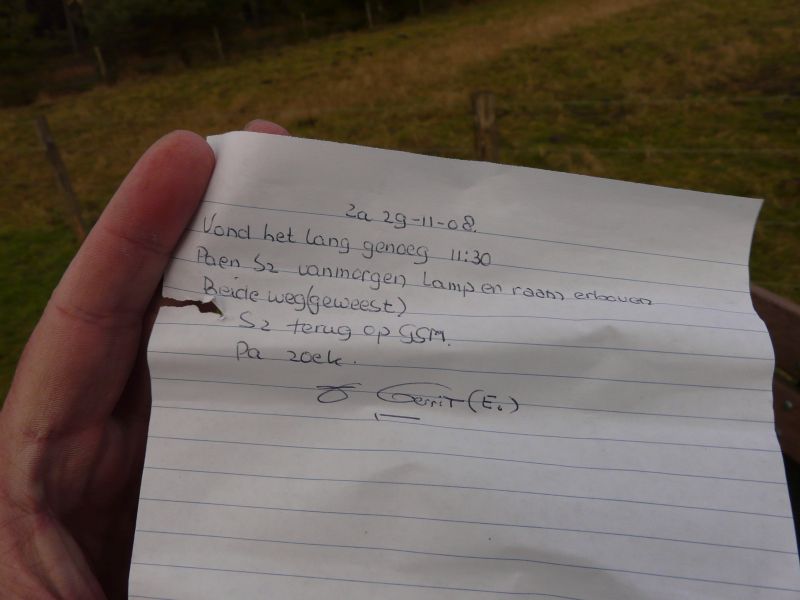 Za 29-11-08.
Vond het lang genoeg 11:30
Pa en S2 vanmorgen Lamp en raam erboven
Beide weg(geweest)
S2 terug op GSM.
Pa zoek.
Gerrit (E.)